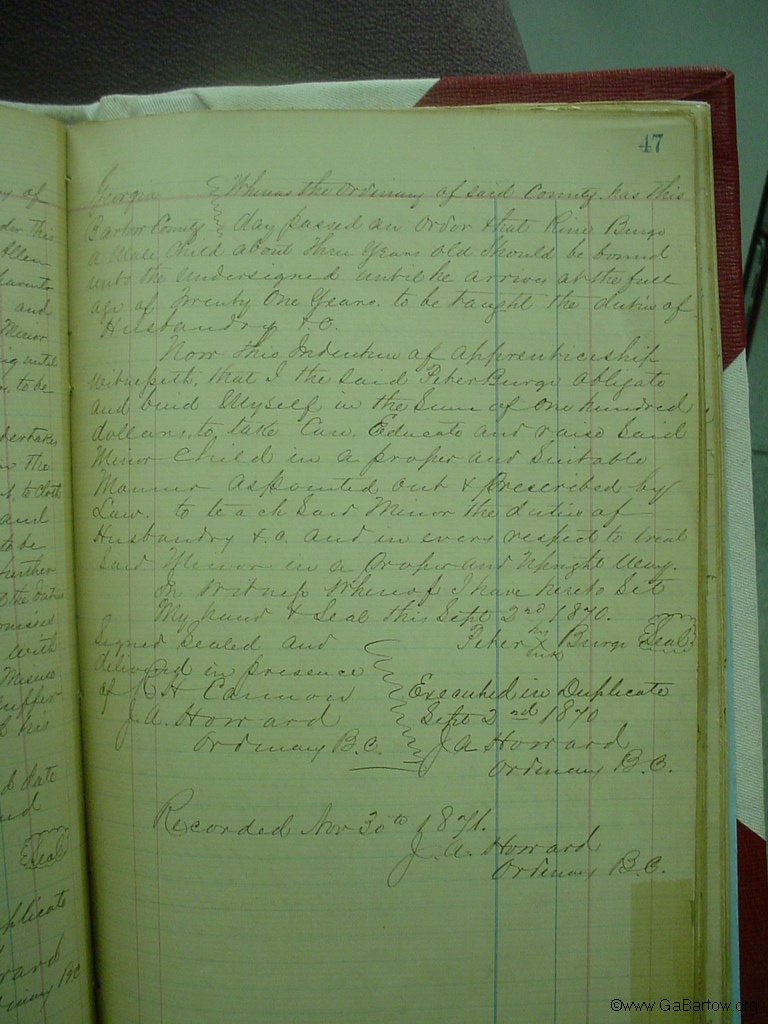 47
Georgia Whereas the Ordinary of said County has this
Bartow County day passed an order that Rine Burge
a Male Child about three years old should be bound
unto the undersigned until he arrives at the full
age of Twenty One years. to be taught the duties of
Husbandry &c.
Now this Indenture of apprenticeship
Witnesseth, that I the said Peter Burge obligate
and bind Myself in the Sum of one hundred
dollars, to take Care, Educate and raise Said
Minor Child in a proper and Suitable
Manner as pointed out & Prescribed by
Law. to teach Said Minor the duties of
Husbandry &c. and in every respect to treat
Said Minor in a Proper and Upright Way.
In Witness Whereof I have hereto Set
My hand & Seal this Sept 2nd 1870.
Signed Sealed and Peter his X mark Burge Seal
delivered in presence
of H Cannon Executed in Duplicate
J. A. Howard Sept 2nd 1870
Ordinary B.C. J A Howard
Ordinary B.C.
Recorded Nov 30th 1871.
J. A. Howard
Ordinary B.C.
of
this
Allen
and
Minor
until
to be
the
to Cloth
and
to be
further
with
his
date
Seal
©www.GaBartow.org